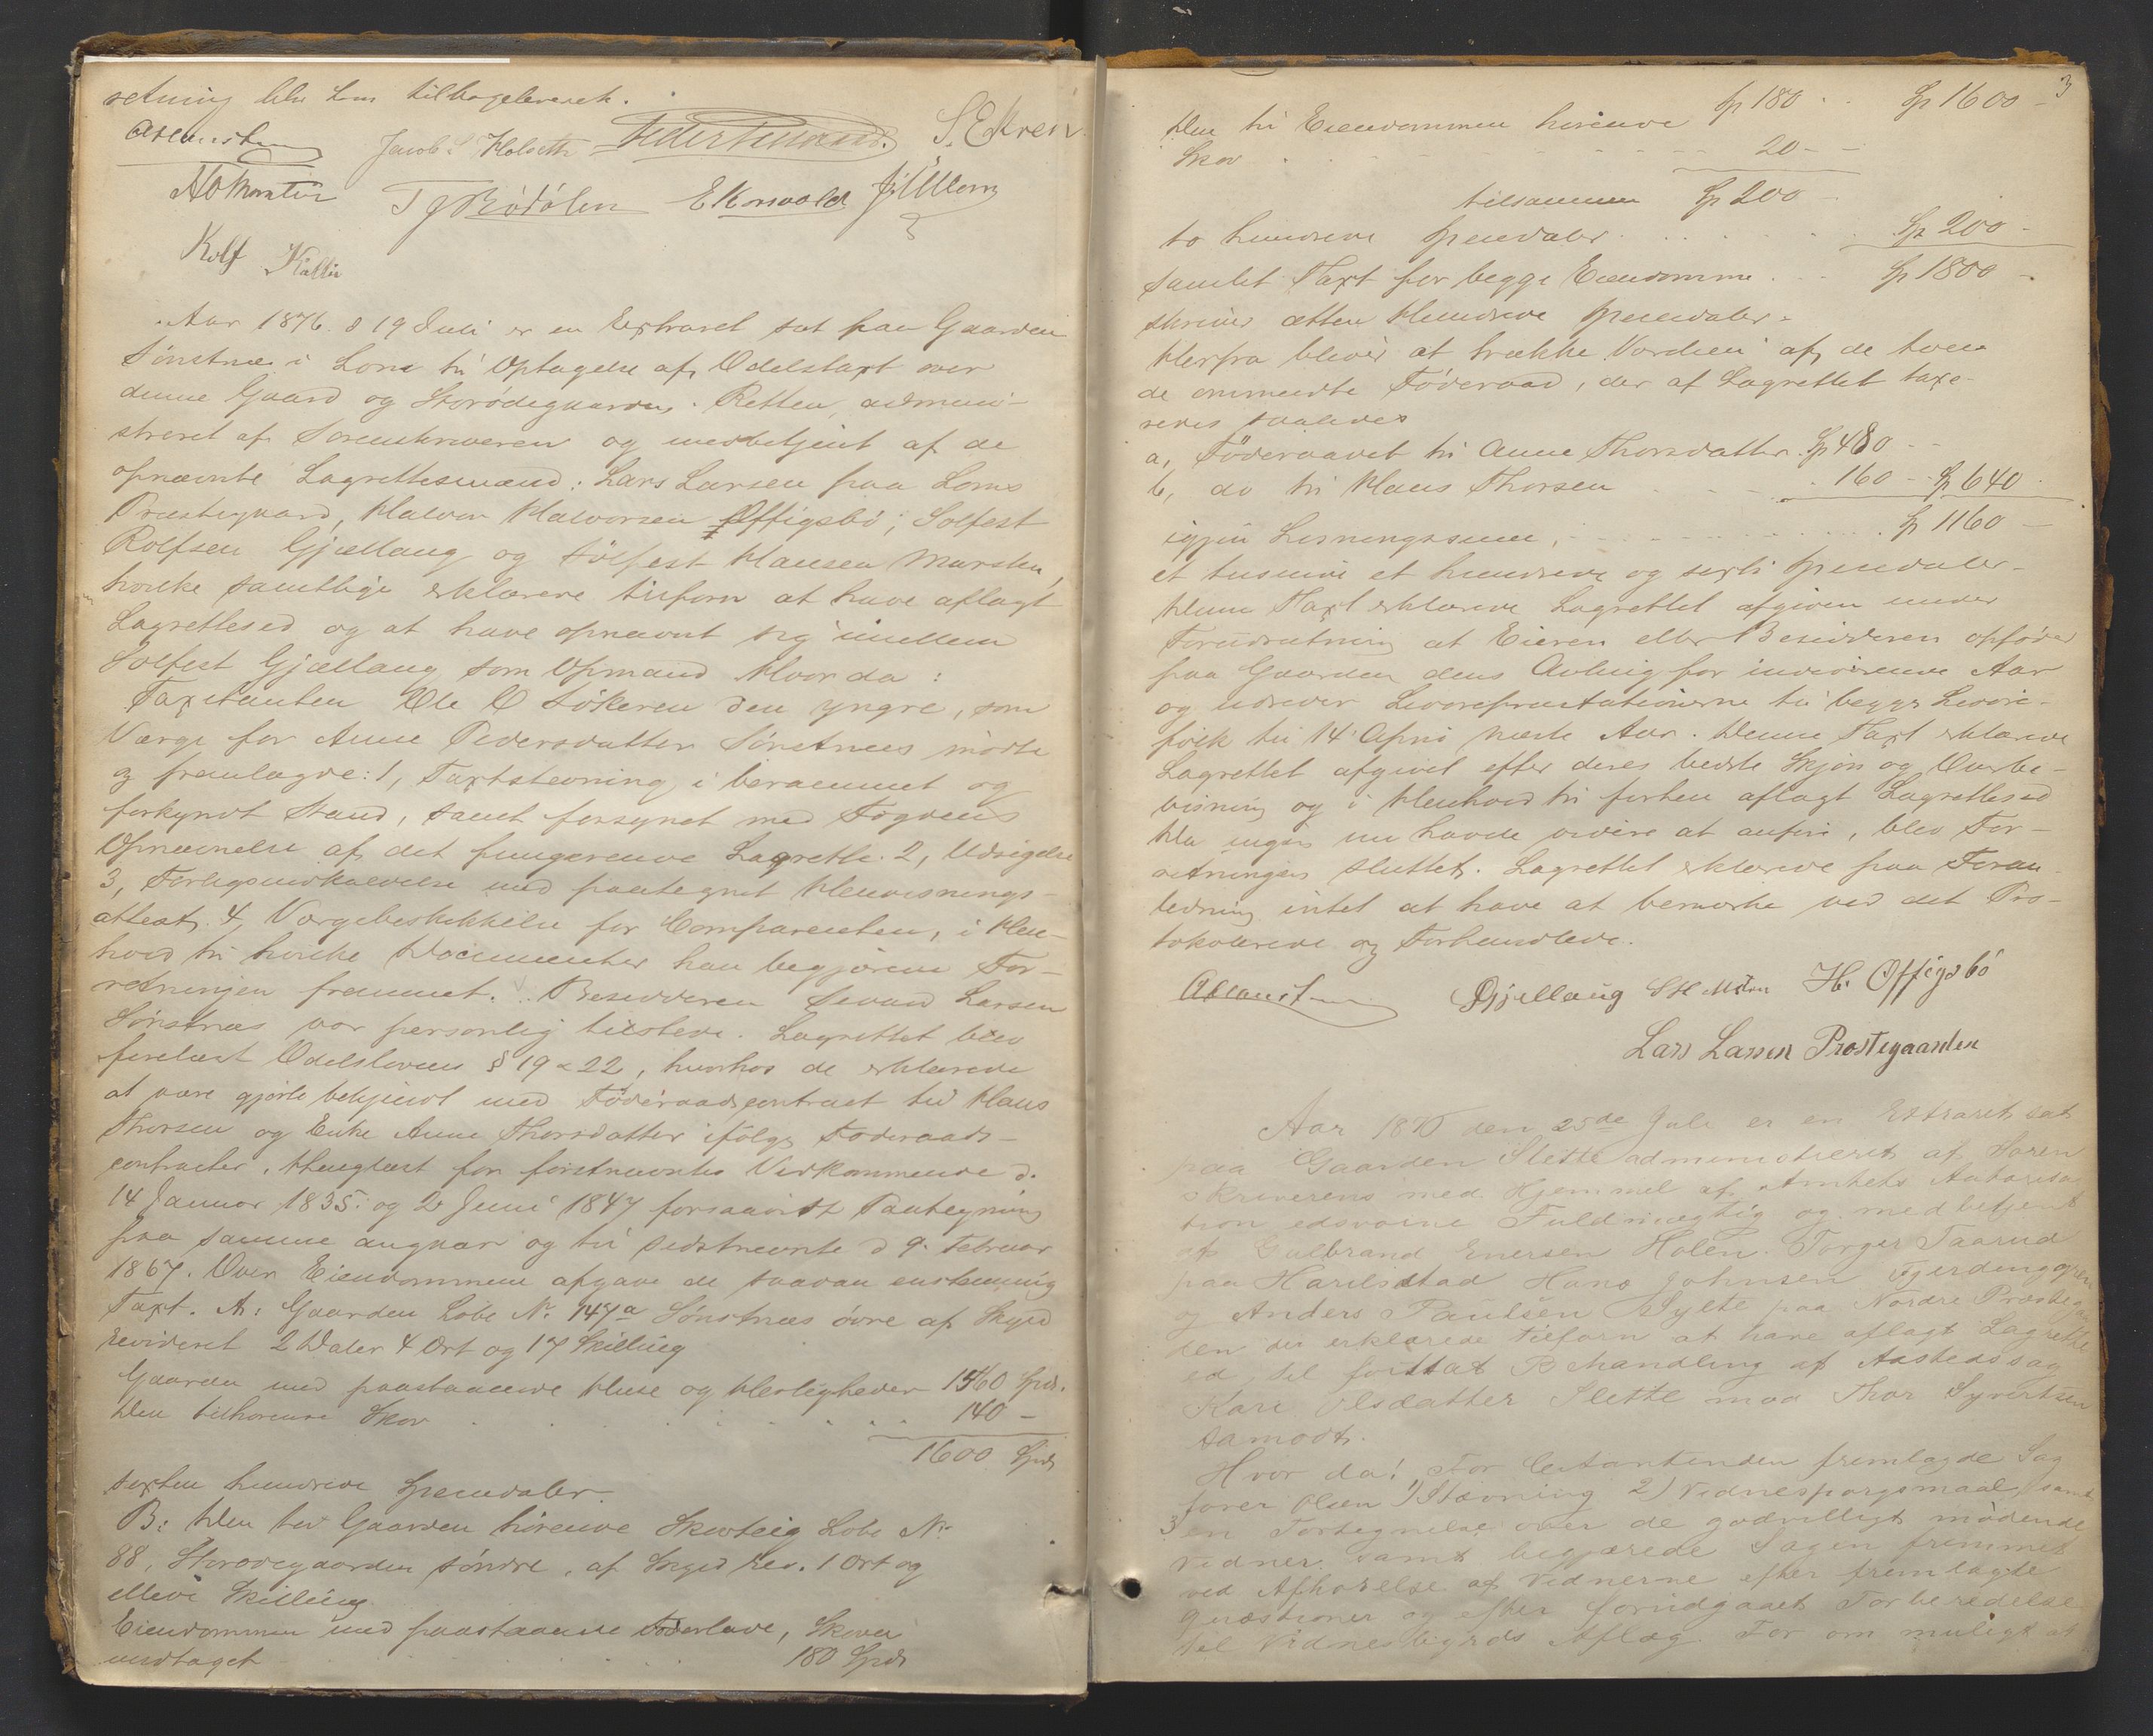 retning blev ham tilbageleveret.
Jacob Holseth S. Ekren
T J Bödölen E Konvold
Rolf Kalli
Aar 1876 d 19 Juli er en Extraret sat paa Gaarden
Sönstnes i Lom til Optagelse af Odelstaxt over
denne Gaard og Storödegaarden. Retten admini-
streret af Sorenskriveren og medbetjent af de
opnævnte Lagrettesmænd: Lars Larsen paa Loms
Præstegaard, Halvor Halvorsen Offigsbö, Solfest
Rolfsen Gjællaug og Sölfest Hansen Marsten,
hvilke samtlige erklærede tilforn at have aflagt
Lagrettesed og at have opnævnt sig imellem
Solfest Gjællaug som Opmand. Hvor da:
Taxtcitanten Ole O Lökeren den yngre, som
Værge for Anne Pedersdatter Sönstnes mödte
og fremlagde: 1, Taxtstevning i berammet og
forkyndt Stand, samt forsynet med Fogdens
Opnævnelse af det fungerende Lagrette. 2, Udsigelse
3, Forligsindkaldelse med paategnet Henvisnings-
attest. 4, Værgebeskikkelse for Comparenten, i Hen-
hold til hvilke Documenter han begjærede For-
retningen fremmet. Besidderen Sivand Larsen
Sönstnæs var personlig tilstede. Lagrettet blev
forelæst Odelslovens § 19 - 22, hvorhos de erklærede
at være gjorte bekjendt med Föderaadscontract til Hans
Thorsen og Enke Anne Thorsdatter ifölge Föderaads-
contracter, thinglæst for förstnævntes Vedkommende d.
14 Januar 1835 og 2 Juni 1847 forsaavidt Paategning
paa samme angaar og til sidstnævnte d 9. Februar
1867. Over Eiendommene afgave de saadan enstemmig
Taxt. A: Gaarden Löbe No 147a Sönstnæs övre af Skyld
revideret 2 Daler 4 Ort og 17 Skilling
Gaarden med paastaaende Huse og Herligheder 1460 Spd.
Den tilhörende Skov . . . 140 -
1600 Spd
sexten hundrede Speciedaler.
B: Den til Gaarden hörende Skovteig Löbe No
88, Storödegaarden söndre, af Skyld rev. 1 Ort og
elleve Skilling
Eiendommen med paastaaende Foderlade, Skoven
undtaget . . . 180 Spd
3
Sp 180 - Sp 1600 -
Den til Eiendommen hörende
Skov . . . 20 - -
tilsammen Sp 200 -
to hundrede Speciedaler . . . Sp 200 -
samlet Taxt for begge Eiendomme . . . Sp 1800 -
skriver atten Hundrede Speciedaler.
Herfra bliver at trække Værdien af de tvende
de ommeldte Föderaad, der af Lagrettet taxe-
redes saaledes
a, Föderaadet til Anne Thorsdatter Sp 480 -
b, do til Hans Thorsen . . . 160 - Sp 640
igjen Lösningssum, . . . Sp 1160 -
et tusinde et hundrede og sexti Speciedaler.
Denne Taxt erklærede Lagrettet afgiven under
Forudsætning at Eieren eller Besidderen opföder
paa Gaarden dens Avling for indeværende Aar
og udreder Livörepræstationerne til begge Livöre-
folk til 14 April næste Aar. Denne Taxt erklærede
Lagrettet afgivet efter deres bedste Skjön og Overbe-
visning og i Henhold til forhen aflagt Lagrettesed
Da ingen nu havde videre at anföre, blev For-
retningen sluttet. Lagrettet erklærede paa Foran-
ledning intet at have at bemærke ved det Pro-
tokolerede og Forhandlede.
S Gjellaug H. Offigsbö
Lars Larsen Prostegaarden
Aar 1876 den 25de Juli er en Extraret sat
paa Gaarden Slette administreret af Soren
skriverens med Hjemmel af Amtets Autorisa
tion edsvorne Fuldmægtig og medbetjent
af Gulbrand Enersen Holen. Torger Taarud
paa Harilstad Hans Johnsen Gjerdingggren
og Anders Paulsen Sylte paa Nordre Præstegaar
den der erklærede tilforn at have aflagt Lagrette
ed, til fortsat Behandling af Aastedssag
Kari Olsdatter Slette mod Thor Syvertsen
Aamodt.
Hvor da! For Citantinden fremlagde Sag
förer Olsen 1) Stævning 2) Vidnespørgsmaal samt
3 en Fortegnelse over de godvilligt mödende
Vidner samt begjærede Sagen fremmet
ved Afhörelse af Vidnerne efter fremlagte
Quæstioner og efter forudgaaet Forberedelse
til Vidnesbyrds Aflæg. For om muligt at